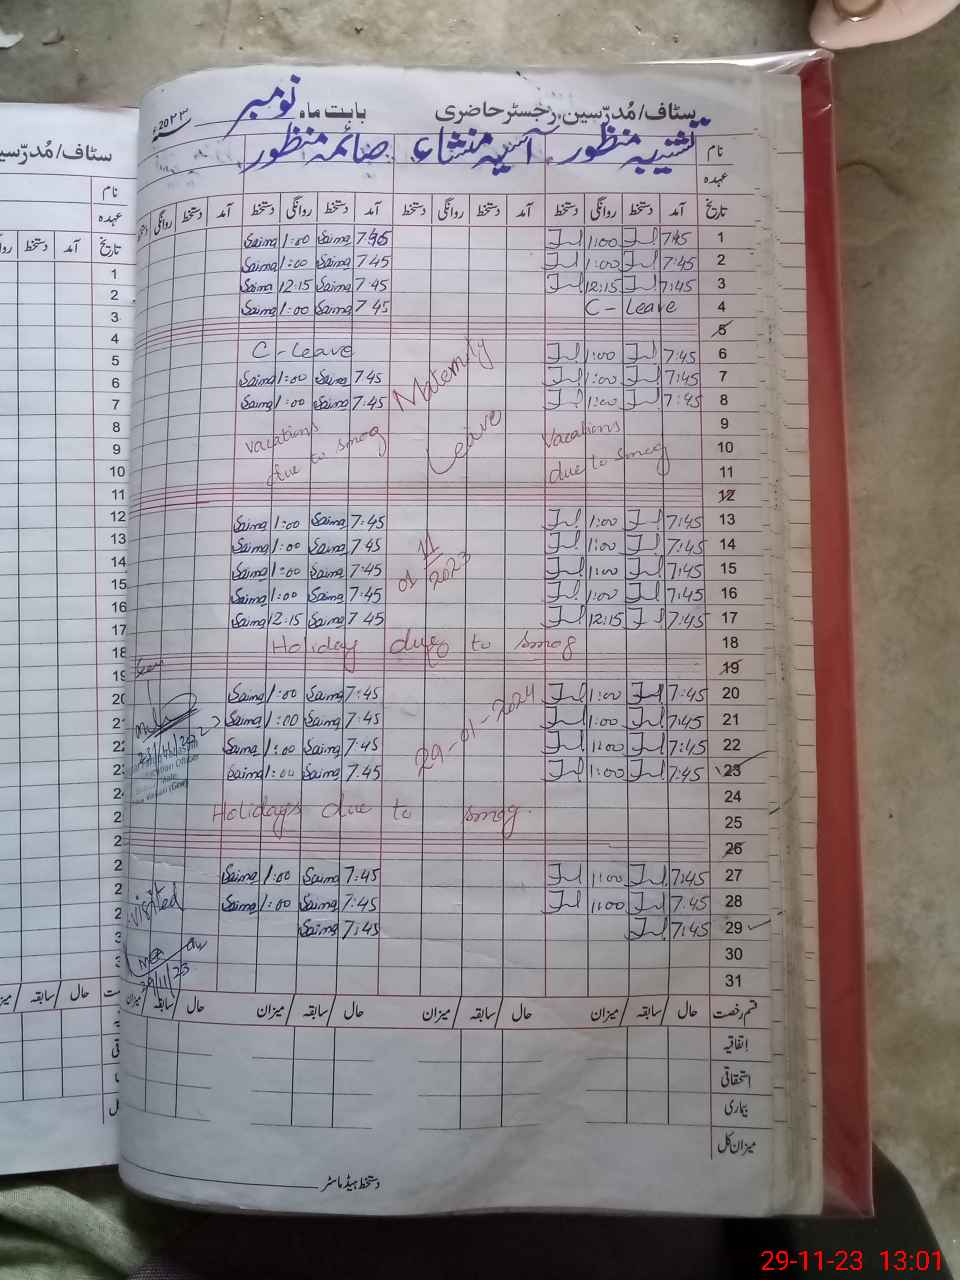 سٹاف/مُدرّسین رجسٹر حاضری بابت ماہ نومبر 20۲۳ء
نام تشیبہ منظور آسیہ منشاء صائمہ منظور
عہدہ
تاریخ آمد دستخط روانگی دستخط آمد دستخط روانگی دستخط آمد دستخط روانگی دستخط آمد دستخط روانگی دستخط
1 7:45 1:00 7:45 Saima 1:00 Saima
2 7:45 1:00 7:45 Saima 1:00 Saima
3 7:45 12:15 7:45 Saima 12:15 Saima
4 C - Leave 7:45 Saima 1:00 Saima
5
6 7:45 1:00 C - Leave
7 7:45 1:00 7:45 Saima 1:00 Saima
8 7:45 1:00 7:45 Saima 1:00 Saima
Maternity
Leave
9 Vacations vacations
10 due to smog due to smog
11
12
13 7:45 1:00 7:45 Saima 1:00 Saima
14 7:45 1:00 7:45 Saima 1:00 Saima
15 7:45 1:00 7:45 Saima 1:00 Saima
16 7:45 1:00 7:45 Saima 1:00 Saima
17 7:45 12:15 7:45 Saima 12:15 Saima
01 11 2023
18 Holiday due to smog
19
20 7:45 1:00 7:45 Saima 1:00 Saima
21 7:45 1:00 7:45 Saima 1:00 Saima
22 7:45 1:00 7:45 Saima 1:00 Saima
23 7:45 1:00 7:45 Saima 1:00 Saima
29-01-2024
24 Holidays due to smog.
25
26
27 7:45 1:00 7:45 Saima 1:00 Saima
28 7:45 1:00 7:45 Saima 1:00 Saima
29 7:45 7:45 Saima
30
31
visited
29/11/23
قسم رخصت حال سابقہ میزان حال سابقہ میزان حال سابقہ میزان حال سابقہ میزان
اتفاقیہ
استحقاقی
بیماری
میزان کل
دستخط ہیڈ ماسٹر
سٹاف/مُدرّسین
نام
عہدہ
تاریخ آمد دستخط
1
2
3
4
5
6
7
8
9
10
11
12
13
14
15
16
17
18
حال سابقہ میزان
29-11-23 13:01